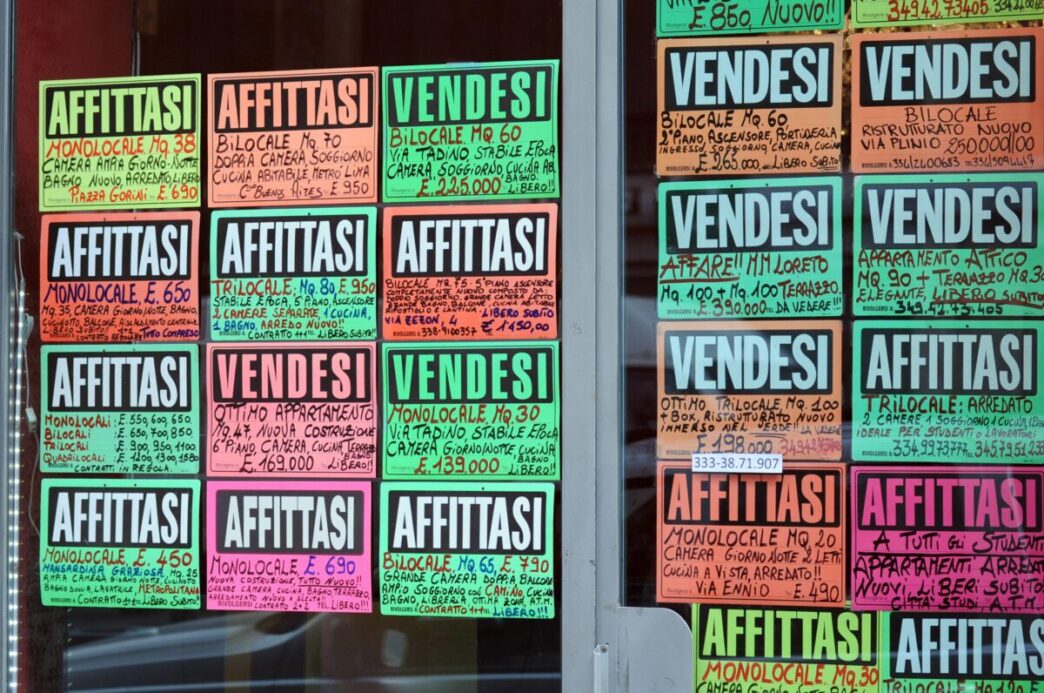 AFFITTASI
MONOLOCALE MQ 38
CAMERA AMPIA GIORNO-NOTTE
BAGNO NUOVO, ARREDATO LIBERO
PIAZZA GORINI E 690
AFFITTASI
BILOCALE MQ 70
DOPPIA CAMERA, SOGGIORNO
CUCINA ABITABILE, METRO LIMA
Cso BUENOS AIRES E 950
VENDESI
BILOCALE MQ 60
VIA TADINO, STABILE EPOCA
CAMERA, SOGGIORNO CUCINA AB,
BAGNO.
E 225.000 LIBERO!!
AFFITTASI
MONOLOCALE, E. 650
MQ 35, CAMERA GIORNO/NOTTE, BAGNO,
CUCINOTTO BALCONE, RISCALDAMENTO CENTRALE
LIBERO SUBITO! TUTTO COMPRESO
CONTRATTO REGOLARE
AFFITTASI
TRILOCALE, MQ. 80, E. 950
STABILE EPOCA, 5° PIANO, ASCENSORE
2 CAMERE SEPARATE, 1 CUCINA,
1 BAGNO, ARREDO NUOVO!!
CONTRATTO 4+4 LIBERO SUBITO!
AFFITTASI
BILOCALE MQ 75 - 5° PIANO ASCENSORE
COMPLETAMENTE NUOVO COMPOSTO DA
DOPPIO SOGGIORNO, GRANDE CAMERA LETTO
GRANDE BAGNO, ELEGANTE, CUCINA ABITABILE
RIPOSTIGLIO E CANTINA! LIBERO SUBITO
VIA BEZON, 4 338-9101357 E 1150,00
AFFITTASI
MONOLOCALI E. 550, 600, 650,
BILOCALI E. 650, 700, 850
TRILOCALI E. 900, 950, 1100
QUADRILOCALI E. 1200, 1300, 1580
CONTRATTI IN REGOLA
VENDESI
OTTIMO APPARTAMENTO
MQ. 47, NUOVA COSTRUZIONE
6° PIANO, CAMERA, CUCINA TERRAZZO
BAGNO
E 169.000 LIBERO!!
VENDESI
MONOLOCALE MQ. 30
VIA TADINO, STABILE EPOCA
CAMERA GIORNO/NOTTE, CUCINA
BAGNO
E 139.000 LIBERO!!
AFFITTASI
MONOLOCALE, E. 450
MANSARDINA GRAZIOSA, MQ 25
AMPIA CAMERA GIORNO NOTTE, CUCINOTTO
BAGNO DOCCIA, LAVATRICE, METROPOLITANA
CONTRATTO 4+4 LIBERO SUBITO!
AFFITTASI
MONOLOCALE, E 690
NUOVA COSTRUZIONE, TUTTO NUOVO!!
GRANDE CAMERA, CUCINA, BAGNO, TERRAZZO,
ARREDAMENTO NUOVO
RIVOLGERSI CONTRATTO 2+2 TEL LIBERO!!
AFFITTASI
BILOCALE, MQ 65, E. 790
GRANDE CAMERA DOPPIA, BALCONE
AMPIO SOGGIORNO CON CAMINO CUCINA
BAGNO, LIBRERIA OTTIMA ZONA, A.T.M.
CONTRATTO 4+4 LIBERO!!
E. 850, NUOVO!!
349.42.73405
VENDESI
BILOCALE MQ. 60
2° PIANO, ASCENSORE, PORTINERIA
INGRESSO, SOGGIORNO, CAMERA, CUCINA
E 265.000 LIBERO SUBITO
VENDESI
BILOCALE
RISTRUTTURATO NUOVO
VIA PLINIO 250.000/00
RIVOLGERSI A
VENDESI
AFFARE!! MM LORETO
MQ. 100 + MQ 100 TERRAZZO.
E 390.000 DA VEDERE!!
VENDESI
APPARTAMENTO ATTICO
MQ. 90 + TERRAZZO MQ 30
ELEGANTE, LIBERO SUBITO
349.42.73.405
VENDESI
OTTIMO TRILOCALE MQ. 100
+ BOX, RISTRUTTURATO NUOVO
IMMERSO NEL VERDE!! DA VEDERE
E 198.000
333-38.71.907
AFFITTASI
TRILOCALE: ARREDATO
2 CAMERE 1 SOGGIORNO 1 CUCINA
IDEALE PER STUDENTI O LAVORATORI
AFFITTASI
MONOLOCALE MQ 20
CAMERA GIORNO NOTTE 2 LETTI
CUCINA A VISTA, ARREDATO!!
VIA ENNIO E. 490
AFFITTASI
A TUTTI GLI STUDENTI
APPARTAMENTI ARREDATI
NUOVI, LIBERI SUBITO!
CITTÀ STUDI A.T.M.
AFFITTASI
MONOLOCALE MQ 30
AFFITTASI
TRILOCALE MQ 120